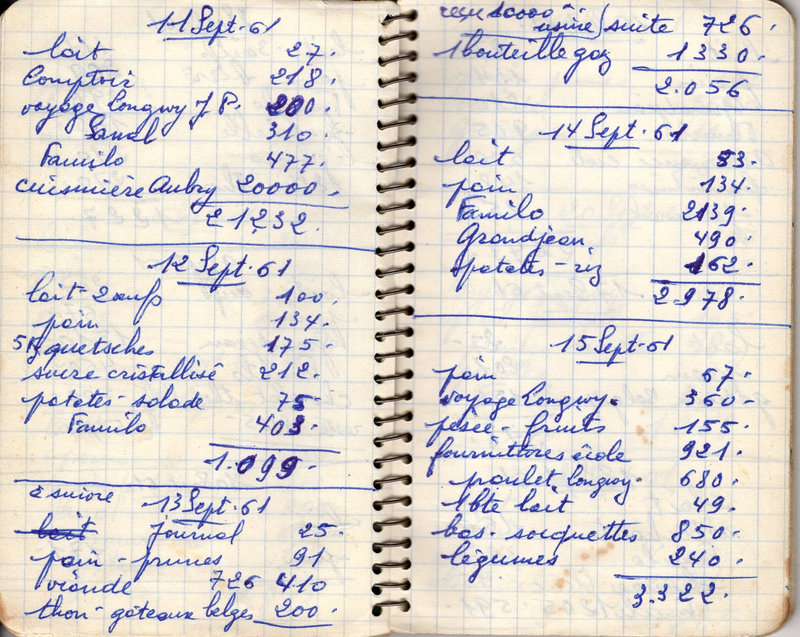 11 Sept. 61
lait 27.
Comptoir 218.
voyage Longwy J P. 200.
Sanal 310.
Familo 477.
cuisinière Aubry 20000.
21232.
12 Sept. 61
lait-2 œufs 100.
pain 134.
5K quetsches 175.
sucre cristallisé 212.
patates-salade 75
Familo 403.
1.099.
à suivre 13 Sept. 61
lait Journal 25.
pain - prunes 91
viande 726 410
thon-gâteaux belges 200.
reçu 10000 usine / suite 726.
1 bouteille gaz 1330.
2.056
14 Sept. 61
lait 53.
pain 134.
Familo 2139.
Grandjean 490.
patates-riz 162.
2.978.
15 Sept. 61
pain 67.
voyage Longwy. 360-
fruits 155.
fournitures école 921.
poulet Longwy. 680.
1 bte lait 49.
bas-socquettes 850.
légumes 240.
3.322.